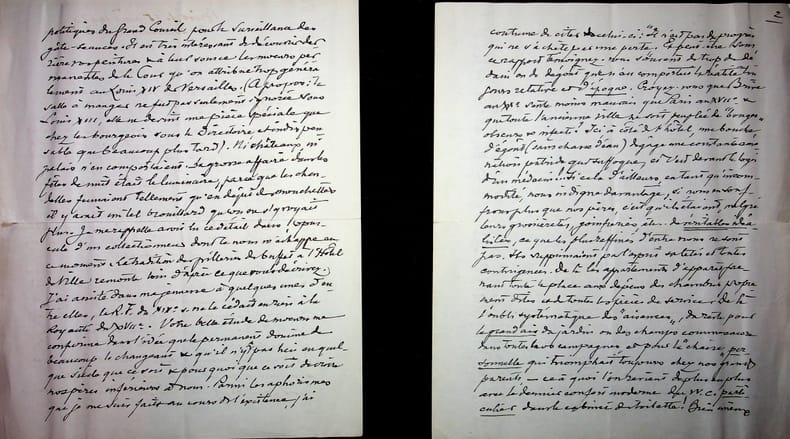 politiques du Grand Conseil pour la Surveillance des
gâte-sauces. Il est très intéressant de découvrir des
à leur source les mœurs per-
manentes de la Cour qu'on attribue trop généra
lement au Louis XIV de Versailles. (A propos: la
salle à manger ne fut pas seulement ignorée sous
Louis XIII, elle ne devint une pièce spéciale que
chez les bourgeois sous le Directoire
sable que beaucoup plus tard). Ni châteaux, ni
palais n'en comportaient. La grosse affaire dans les
fêtes de nuit était le luminaire, parce que les chan-
delles fumaient tellement qu'en dépit des mouchettes
il y avait un tel brouillard qu'on ne s'y voyait
plus. Je me rappelle avoir lu ce détail dans l'opus-
cule d'un collectionneur dont le nom m'échappe en
ce moment. La tradition des pilleries de buffet à l'Hôtel
de Ville remonte loin d'après ce que vous décrivez.
J'ai assisté dans ma jeunesse à quelques unes d'en
tre elles, la R.F. du XIXe s. ne le cédait en rien à la
Royauté du XVIIe. Votre belle étude de mœurs me
confirme dans l'idée que le permanent domine de
beaucoup le changeant & qu'il n'y a pas lieu en quel-
que siècle que ce soit & pourquoi que ce soit de croire
nos pères inférieurs à nous. Parmi les aphorismes
que je me suis faits au cours de l'existence, j'ai
2
coutume de citer celui-ci: "Il n'est pas de progrès
qui ne s'achète par une perte." Et peut-être sous
ce rapport
dain ou de dégoût que n'en comporte la réalité tou
jours relative et d'époque. Croyez-vous que Brive
au XXe siècle moins mauvais que Paris au XVIIe &
que toute l'ancienne ville ne soit peuplée de "bouges"
obscurs & infects? Ici à côté de l'hôtel, une bouche
d'égout (sans chasse d'eau) dégage une constante
putride qui suffoque, et c'est devant le logis
d'un médecin! Si cela d'ailleurs, en tant qu'incom-
modité, nous indigne davantage, si nous en souf
frons plus que nos pères, c'est qu'ils étaient, malgré
leurs grossièretés, goinfreries etc. de véritables idéa-
listes, ce que les plus raffinés d'entre nous ne sont
pas. Ils supprimaient par esprit saletés et toutes
contingences. De là les appartements d'apparat pre
nant toute la place aux dépens des chambres propre
ment dites et de toutes les pièces de service; de là
l'oubli systématique des "aisances", du reste, pour
le grand air du jardin ou des champs
dans toutes les campagnes et pour la chaise "per-
sonnelle" qui triomphait toujours chez nos grands
parents — ce à quoi l'on revient de plus en plus
avec le dernier confort moderne du W.C. parti-
culier dans le cabinet de toilette! Bien mieux